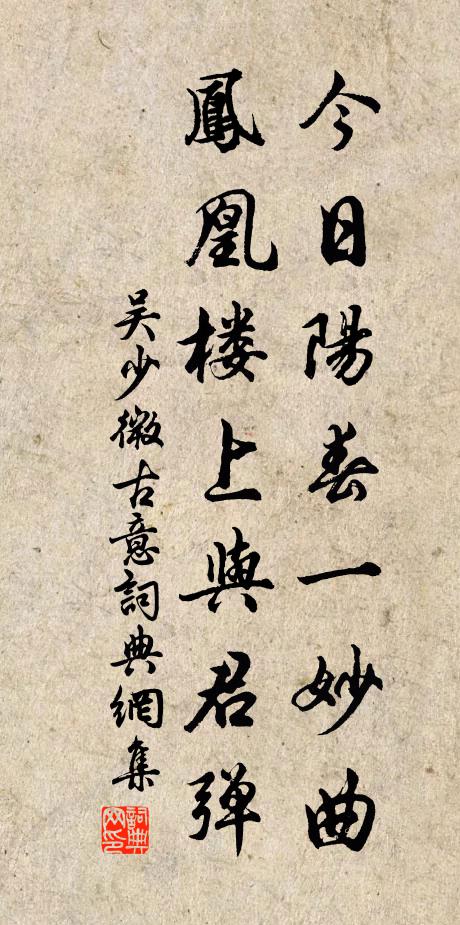 今日陽春一妙曲
鳳凰楼上與君弹
吴少微古意詞典網集
詞典网印